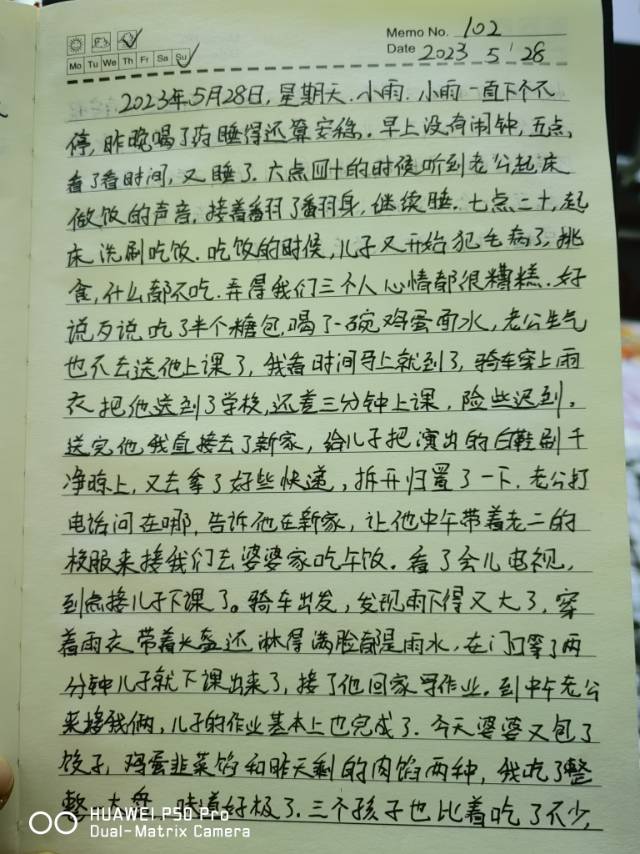 Memo No. 102
Mo Tu We Th Fr Sa Su
Date 2023 5 28
2023年5月28日,星期天.小雨.小雨一直下个不
停,昨晚喝了药睡得还算安稳.早上没有闹钟,五点,
看了看时间,又睡了.六点四十的时候听到老公起床
做饭的声音,接着翻了翻身,继续睡.七点二十,起
床洗刷吃饭.吃饭的时候,儿子又开始犯毛病了,挑
食,什么都不吃.弄得我们三个人心情都很糟糕.好
说歹说吃了半个糖包,喝了一碗鸡蛋面水,老公生气
也不去送他上课了,我看时间马上就到了,骑车穿上雨
衣把他送到了学校,还差三分钟上课,险些迟到。
送完他我直接去了新家,给儿子把演出的白鞋刷干
净晾上,又去拿了好些快递,拆开归置了一下.老公打
电话问在哪,告诉他在新家,让他中午带着老二的
校服来接我们去婆婆家吃午饭.看了会儿电视,
到点接儿子下课了。骑车出发,发现雨下得又大了,穿
着雨衣带着头盔还淋得满脸都是雨水,在门口等了两
分钟儿子就下课出来了,接了他回家写作业.到中午老公
来接我俩,儿子的作业基本上也完成了.今天婆婆又包了
饺子,鸡蛋韭菜馅和昨天剩的肉馅两种,我吃了整
整一大盘,味道好极了.三个孩子也比着吃了不少,
HUAWEI P50 Pro
Dual-Matrix Camera